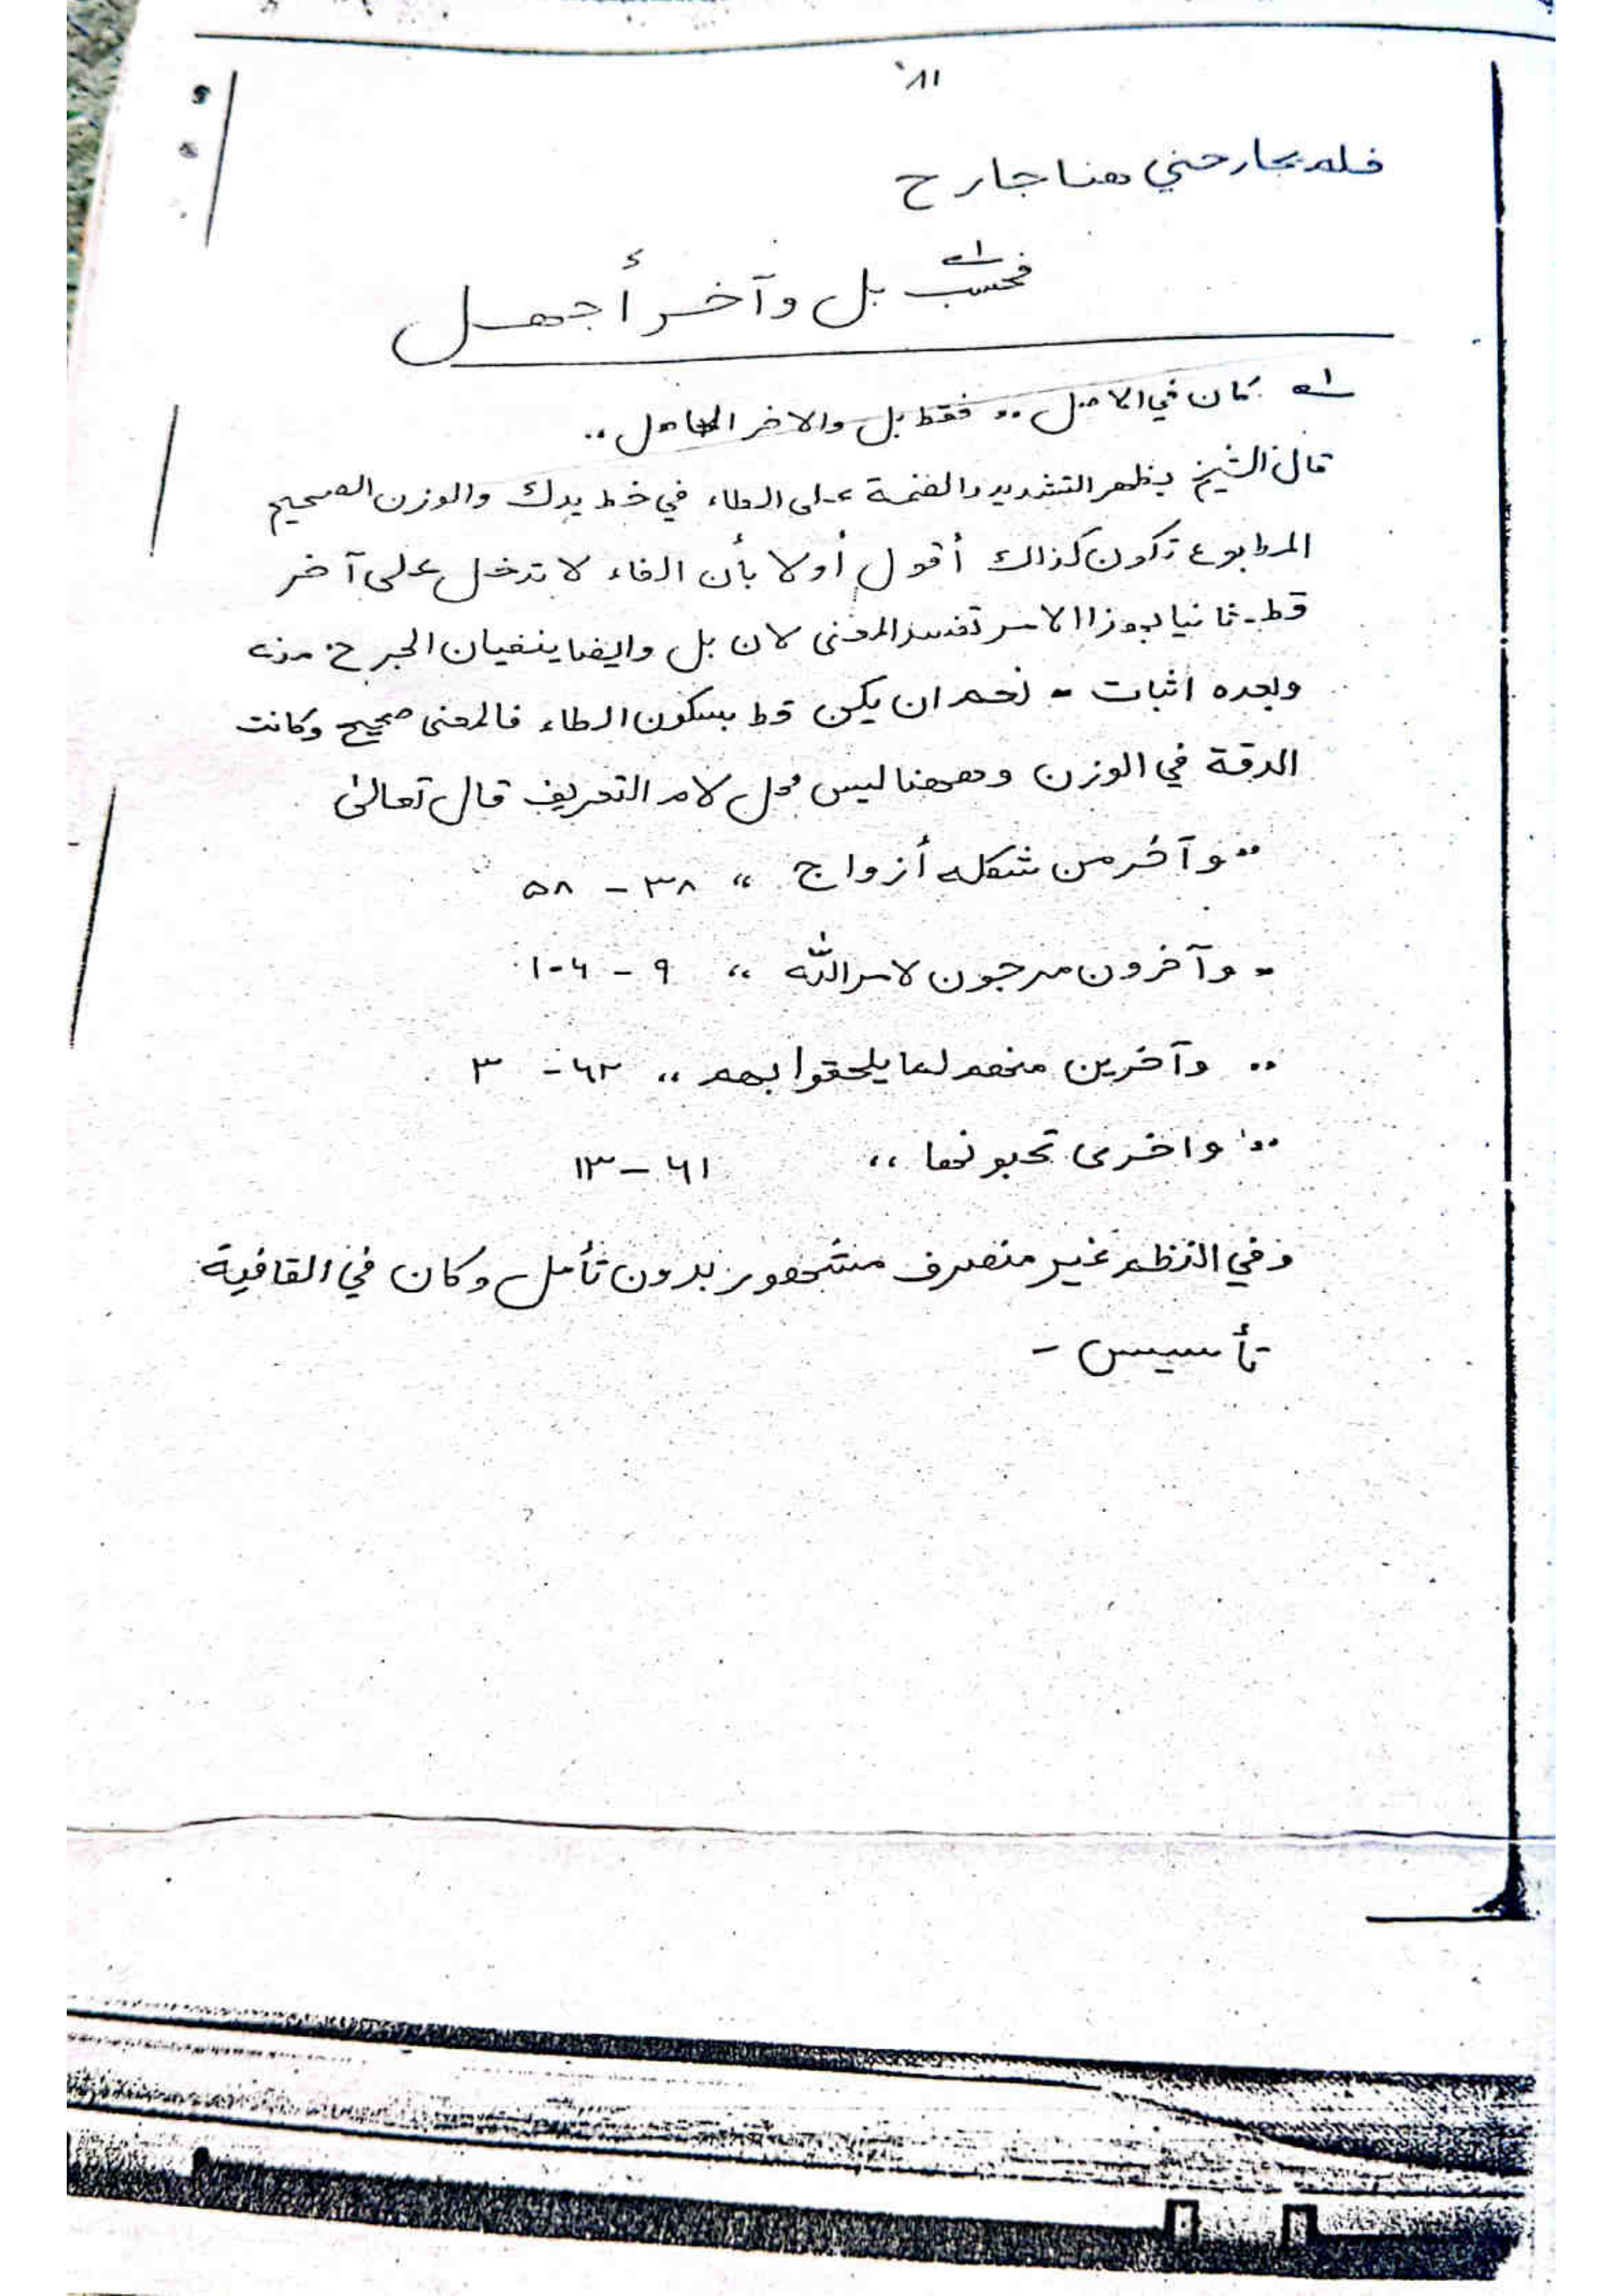 ١١٨
فلم يجارحني هنا جارح
فحسب بل وآخر أجهل
١ـه كان في الاصل ،، فقط بل والاخر الجاهل ،،
قال الشيخ يظهر التشديد والضمة على الطاء في خط يدك والوزن الصحيح
المطبوع تكون كذالك أقول أولا بأن الفاء لا تدخل على آخر
قط ـ ثانيا بهذا الامر تفسد المعنى لان بل وايضا ينفيان الجرح منه
وبعده اثبات ـ نعم ان يكن قط بسكون الطاء فالمعنى صحيح وكانت
الدقة في الوزن وههنا ليس محل لام التعريف قال تعالىٰ
،، وآخر من شكله أزواج ،، ٣٨ - ٥٨
،، وآخرون مرجون لامر الله ،، ٩ - ١٠٦
،، وآخرين منهم لما يلحقوا بهم ،، ٦٢ - ٣
،، واخرى تحبونها ،، ٦١ - ١٣
وفي النظم غير منصرف مشهور بدون تأمل وكان في القافية
تأسيس -